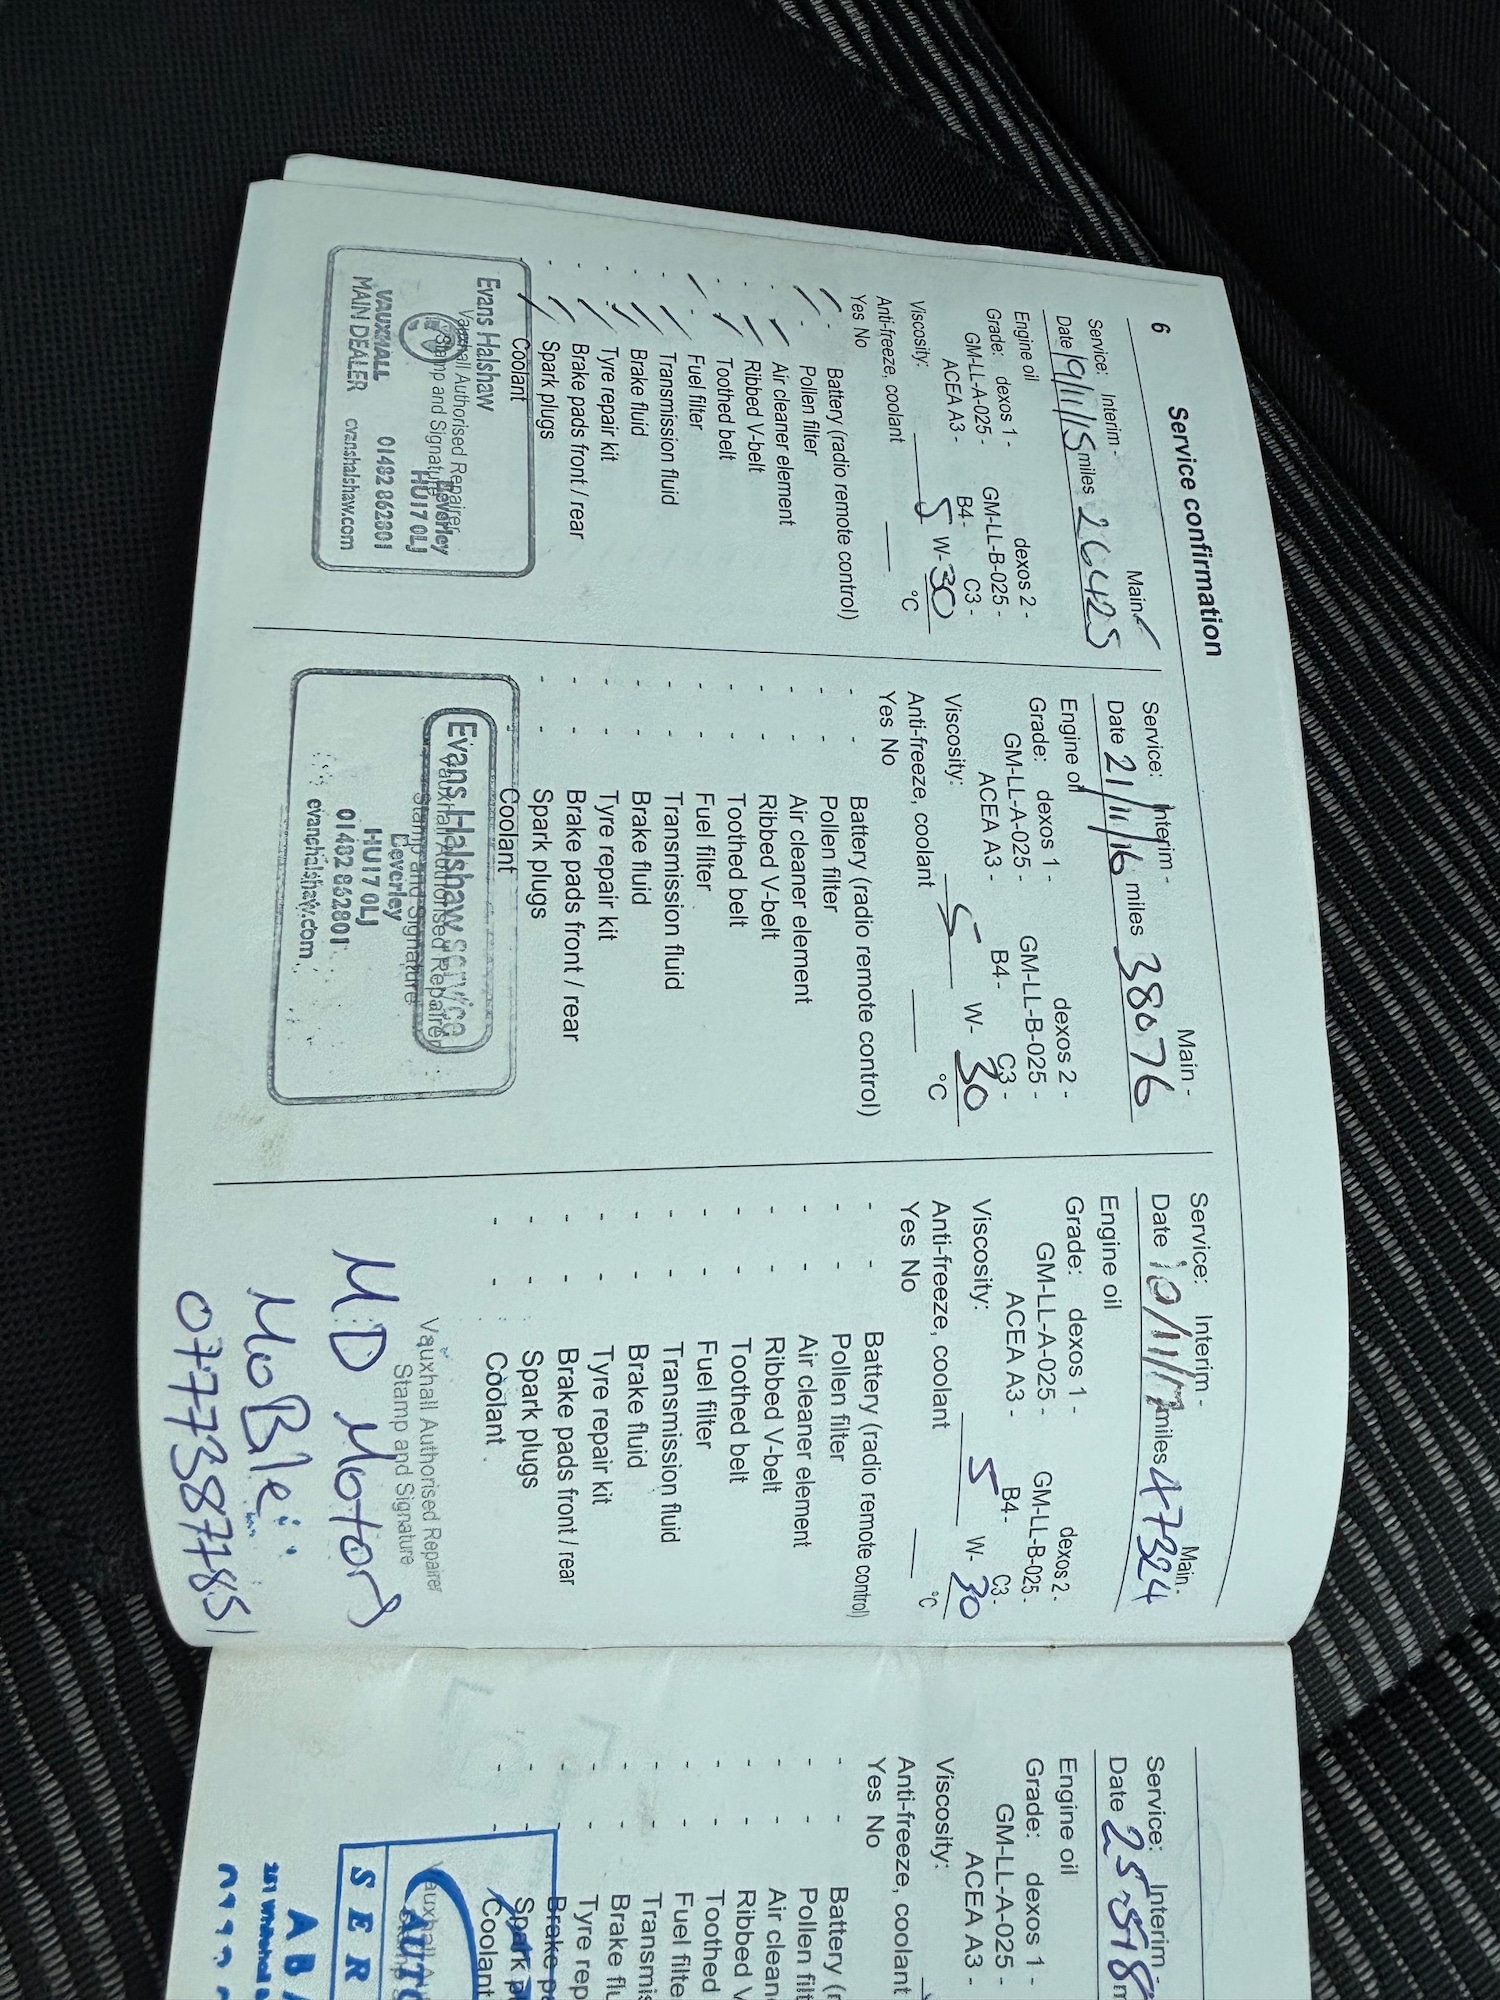 6 Service confirmation
Service: Interim - Main ✓
Date 19/11/15 miles 26425
Engine oil
Grade: dexos 1 - dexos 2 -
GM-LL-A-025 - GM-LL-B-025 -
ACEA A3 - B4- C3 -
Viscosity: 5 W- 30
Anti-freeze, coolant °C
Yes No
Battery (radio remote control)
Pollen filter
Air cleaner element
Ribbed V-belt
Toothed belt
Fuel filter
Transmission fluid
Brake fluid
Tyre repair kit
Brake pads front / rear
Spark plugs
Coolant
Evans Halshaw
Vauxhall Authorised Repairer
Stamp and Signature
Beverley
HU17 0LJ
VAUXHALL 01482 862801
MAIN DEALER evanshalshaw.com
Service: Interim - Main -
Date 21/11/16 miles 38076
Engine oil
Grade: dexos 1 - dexos 2 -
GM-LL-A-025 - GM-LL-B-025 -
ACEA A3 - B4- C3 -
Viscosity: 5 W- 30
Anti-freeze, coolant °C
Yes No
- - Battery (radio remote control)
- - Pollen filter
- - Air cleaner element
- - Ribbed V-belt
- - Toothed belt
- - Fuel filter
- - Transmission fluid
- - Brake fluid
- - Tyre repair kit
- - Brake pads front / rear
- - Spark plugs
Coolant
Evans Halshaw service
Vauxhall Authorised Repairer
Stamp and Signature
Beverley
HU17 0LJ
01482 862801
evanshalshaw.com
Service: Interim - Main -
Date 10/11/17 miles 47324
Engine oil
Grade: dexos 1 - dexos 2 -
GM-LL-A-025 - GM-LL-B-025-
ACEA A3 - B4- C3-
Viscosity: 5 W- 30
Anti-freeze, coolant °C
Yes No
- - Battery (radio remote control)
- - Pollen filter
- - Air cleaner element
- - Ribbed V-belt
- - Toothed belt
- - Fuel filter
- - Transmission fluid
- - Brake fluid
- - Tyre repair kit
- - Brake pads front / rear
- - Spark plugs
- - Coolant
Vauxhall Authorised Repairer
Stamp and Signature
MD Motors
MoBle
07738778
Service: Interim -
Date 25-5-18 m
Engine oil
Grade: dexos 1 -
GM-LL-A-025 -
ACEA A3 -
Viscosity:
Anti-freeze, coolant
Yes No
- - Battery (r
- - Pollen filt
- - Air clean
- - Ribbed V
- - Toothed
- - Fuel filte
- - Transmis
- - Brake flu
- - Tyre rep
- - Brake pa
- - Spark p
- - Coolant
Vauxhall A
AUTO
SER
AB